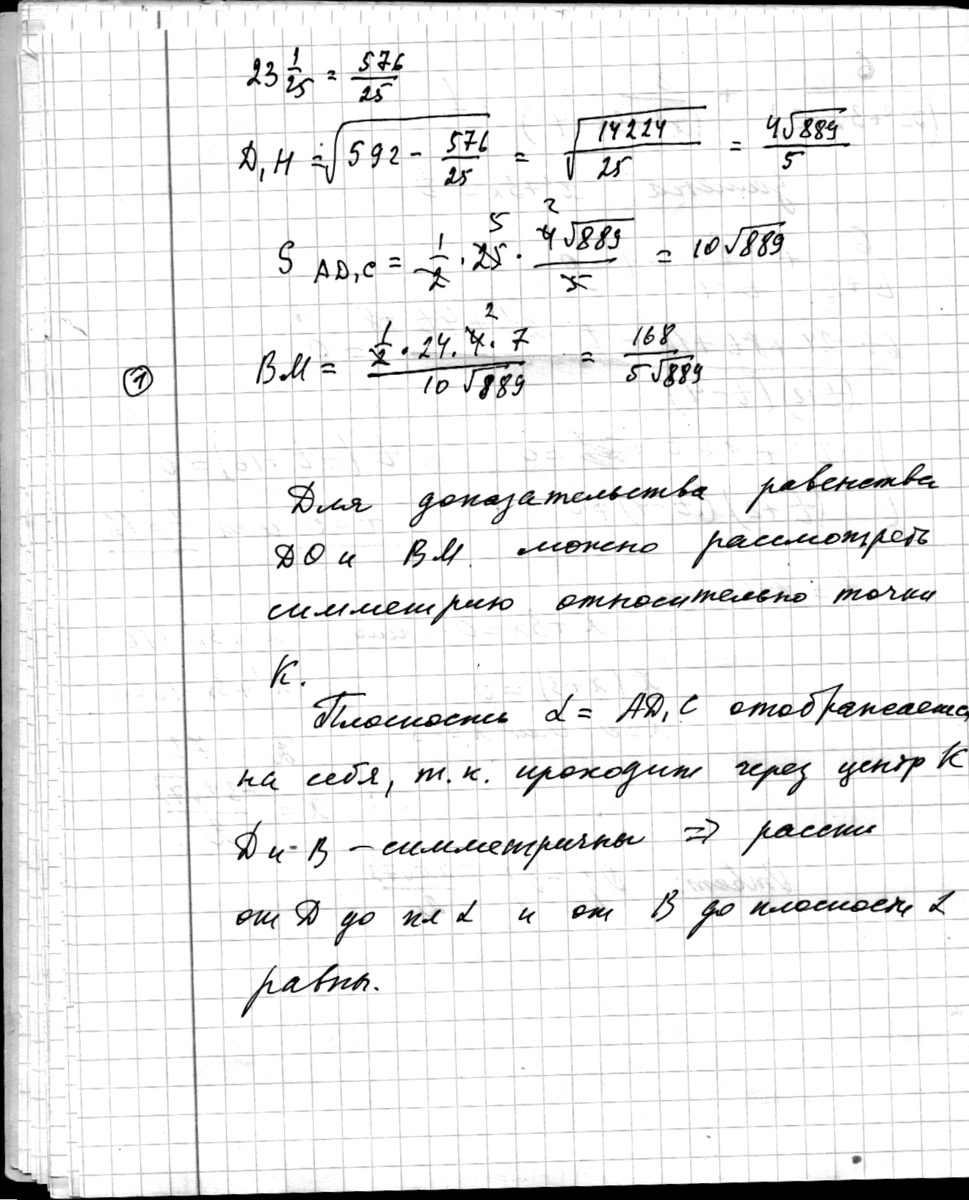 23 1/25 = 576/25
D₁H = √(592 - 576/25) = √(14224/25) = 4√889/5
S AD₁C = 1/2 · 25 · 4√889/5 = 10√889
① BM = (1/2 · 24 · 4 · 7)/(10√889) = 168/(5√889)
Для доказательства равенства
DO и BM можно рассмотреть
симметрию относительно точки
К.
Плоскость α = AD₁C отображается
на себя, т.к. проходит через центр К
D и B – симметричны ⇒ рассти
от D до пл α и от B до плоскости α
равны.